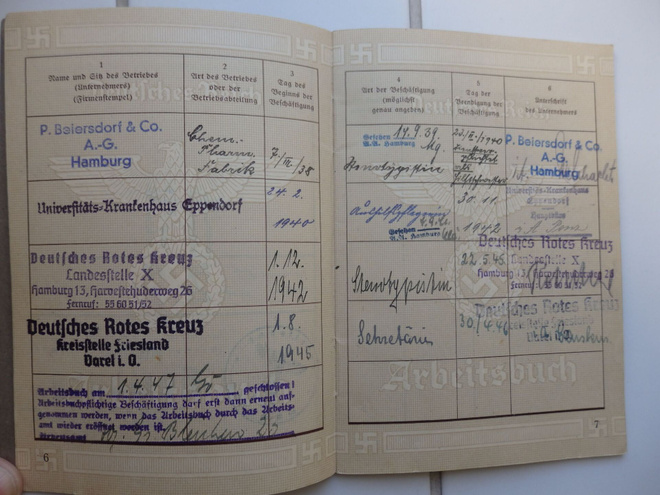 1
Name und Sitz des Betriebes
(Unternehmers)
(Firmenstempel)
2
Art des Betriebes
oder der
Betriebsabteilung
3
Tag des
Beginns der
Beschäftigung
P. Beiersdorf & Co.
A.-G.
Hamburg
Chem.
Pharm.
Fabrik
7/III/38
Universitäts-Krankenhaus Eppendorf
24. 2.
1940
Deutsches Rotes Kreuz
Landesstelle X
Hamburg 13, Harvestehuderweg 26
Fernruf: 55 60 51/52
1.12.
1942
Deutsches Rotes Kreuz
Kreisstelle Friesland
Varel i. O.
1.8
1945
Arbeitsbuch am 1.4.47 geschlossen!
Arbeitsbuchpflichtige Beschäftigung darf erst dann erneut auf-
genommen werden, wenn das Arbeitsbuch durch das Arbeits-
amt wieder eröffnet worden ist.
Arbeitsamt
6
4
Art der Beschäftigung
(möglichst
genau angeben)
5
Tag der
Beendigung der
Beschäftigung
6
Unterschrift
des Unternehmers
Gesehen 14.9.39.
A.A. Hamburg
Stenotypistin
22/II/1940
P. Beiersdorf & Co.
A.-G.
Hamburg
Gesehen
A.A. Hamburg
30.11.
1942
Universitäts-Krankenhaus
Eppendorf
Stenotypistin
22.5.45
Deutsches Rotes Kreuz
Landesstelle X
Hamburg 13, Harvestehuderweg 26
Fernruf: 55 60 51/52
Sekretärin
30.4.46
Deutsches Rotes Kreuz
Kreisstelle Friesland
Arbeitsbuch
7